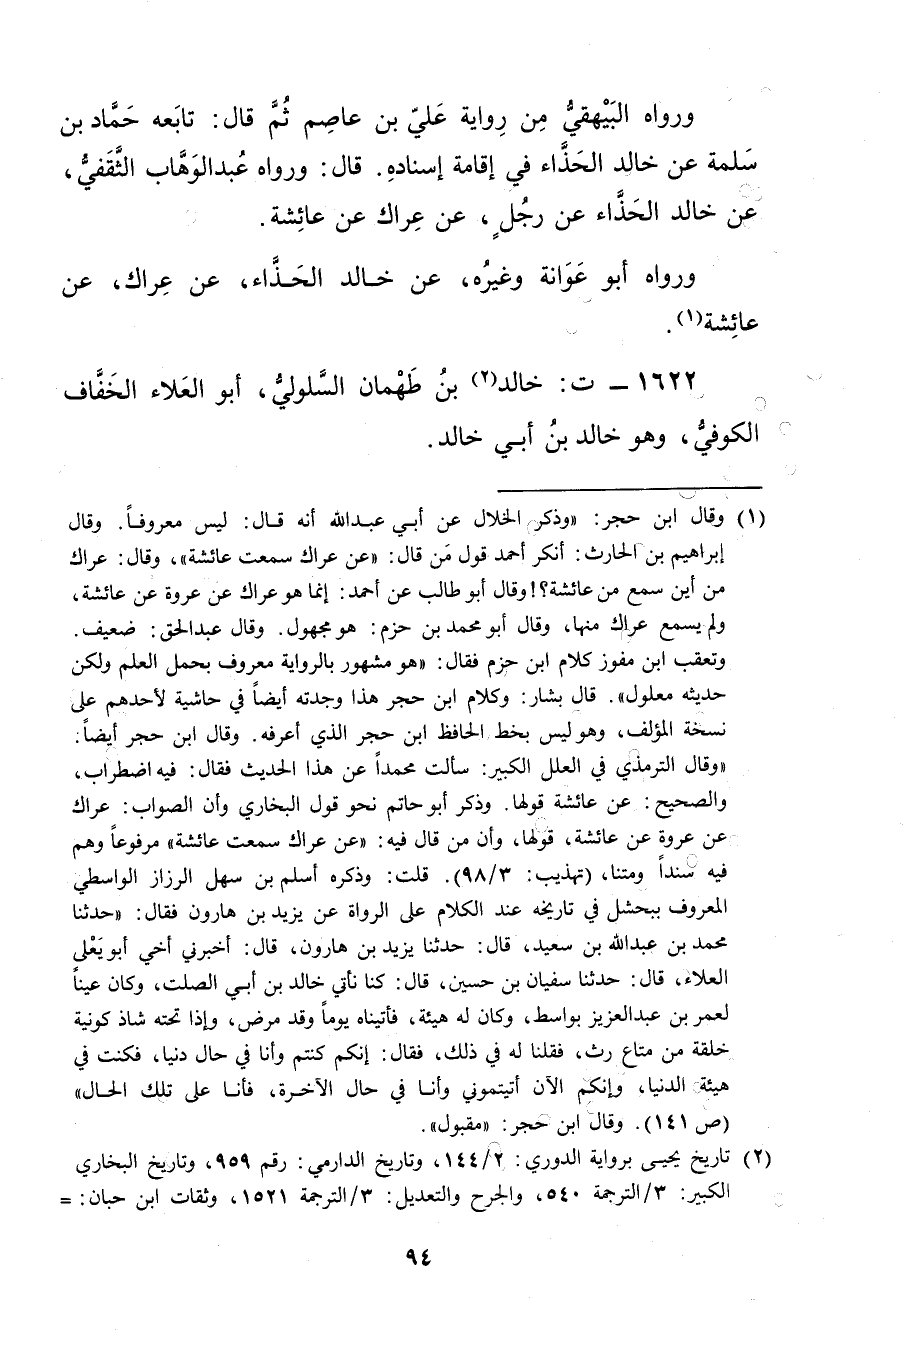 ورواه البَيْهقيُّ مِن رِواية عَليّ بن عاصِم ثُمَّ قال: تابَعه حَمَّاد بن
سَلمة عن خالد الحَذَّاء في إقامة إسنادهِ. قال: ورواه عُبدالوَهَّاب الثَّقَفيُّ،
عن خالد الحَذَّاء عن رجُلٍ، عن عِراك عن عائِشة.
ورواه أبو عَوَانة وغيرُه، عن خالد الحَذَّاء، عن عِراك، عن
عائِشة(١).
١٦٢٢ ـ ت: خالد(٢) بنُ طَهْمان السَّلوليُّ، أبو العَلاء الخَفَّاف
الكوفيُّ، وهو خالد بنُ أبي خالد.
(١) وقال ابن حجر: «وذكر الخلال عن أبي عبدالله أنه قال: ليس معروفاً. وقال
إبراهيم بن الحارث: أنكر أحمد قول مَن قال: «عن عراك سمعت عائشة»، وقال: عراك
من أين سمع من عائشة؟! وقال أبو طالب عن أحمد: إنما هو عراك عن عروة عن عائشة،
ولم يسمع عراك منها، وقال أبو محمد بن حزم: هو مجهول. وقال عبدالحق: ضعيف.
وتعقب ابن مفوز كلام ابن حزم فقال: «هو مشهور بالرواية معروف بحمل العلم ولكن
حديثه معلول». قال بشار: وكلام ابن حجر هذا وجدته أيضاً في حاشية لأحدهم على
نسخة المؤلف، وهو ليس بخط الحافظ ابن حجر الذي أعرفه. وقال ابن حجر أيضاً:
«وقال الترمذي في العلل الكبير: سألت محمداً عن هذا الحديث فقال: فيه اضطراب،
والصحيح: عن عائشة قولها. وذكر أبو حاتم نحو قول البخاري وأن الصواب: عراك
عن عروة عن عائشة، قولها، وأن من قال فيه: «عن عراك سمعت عائشة» مرفوعاً وهم
فيه سنداً ومتنا، (تهذيب: ٩٨/٣). قلت: وذكره أسلم بن سهل الرزاز الواسطي
المعروف ببحشل في تاريخه عند الكلام على الرواة عن يزيد بن هارون فقال: «حدثنا
محمد بن عبدالله بن سعيد، قال: حدثنا يزيد بن هارون، قال: أخبرني أخي أبو يَعْلى
العلاء، قال: حدثنا سفيان بن حسين، قال: كنا نأتي خالد بن أبي الصلت، وكان عيناً
لعمر بن عبدالعزيز بواسط، وكان له هيئة، فأتيناه يوماً وقد مرض، وإذا تحته شاذ كونية
خلقة من متاع رث، فقلنا له في ذلك، فقال: إنكم كنتم وأنا في حال دنيا، فكنت في
هيئة الدنيا، وإنكم الآن أتيتموني وأنا في حال الآخرة، فأنا على تلك الحال»
(ص ١٤١). وقال ابن حجر: «مقبول».
(٢) تاريخ يحيى برواية الدوري: ١٤٤/٢، وتاريخ الدارمي: رقم ٩٥٩، وتاريخ البخاري
الكبير: ٣/الترجمة ٥٤٠، والجرح والتعديل: ٣/الترجمة ١٥٢١، وثقات ابن حبان: =
٩٤